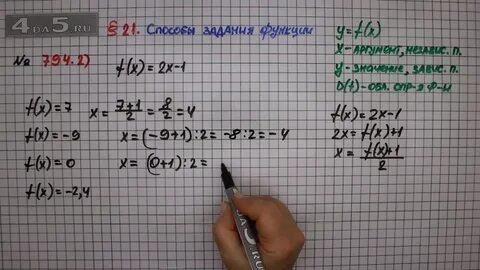 4DA5.RU
§ 21. Способы задания функции
y=f(x)
x-аргумент, независ. п.
y-значение, завис. п.
D(f)-обл. опр-я ф-и
№ 794.2)
f(x) = 2x-1
f(x) = 7 x = 7+1/2 = 8/2 = 4
f(x) = -9 x = (-9+1):2 = -8:2 = -4
f(x) = 0 x = (0+1):2 =
f(x) = -2,4
f(x) = 2x-1
2x = f(x)+1
x = f(x)+1/2